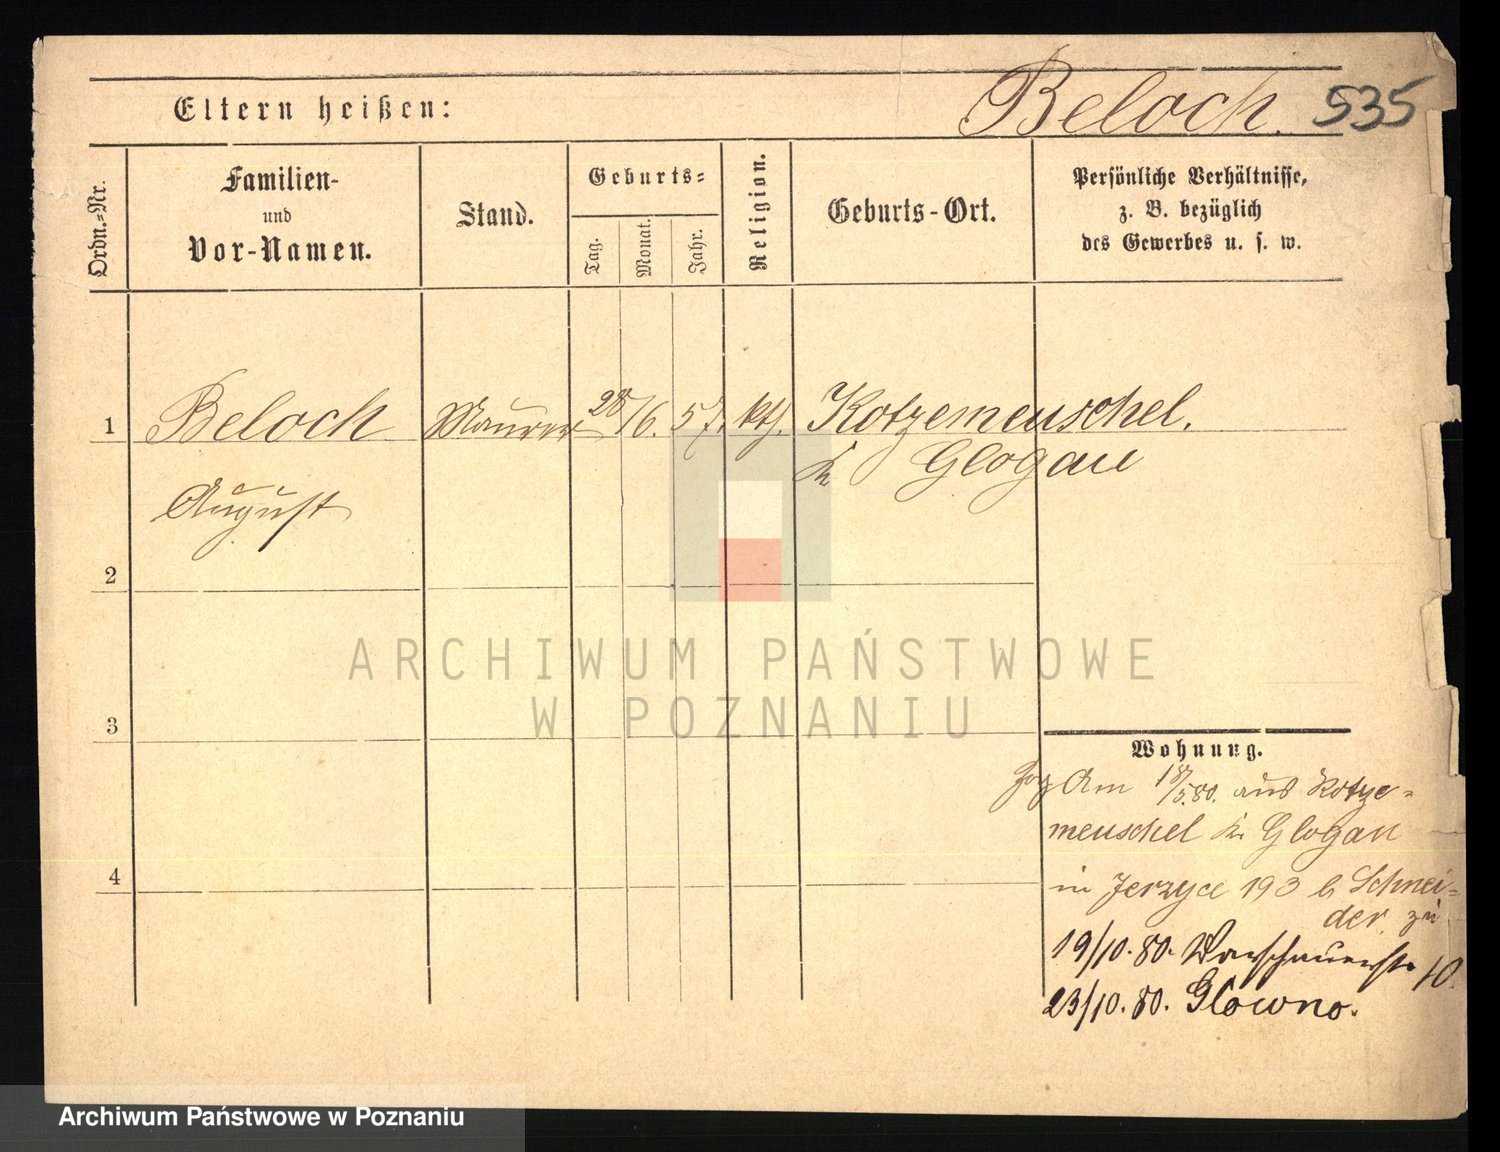 Eltern heißen:
Beloch. 535
Ordn.=Nr.
Familien-
und
Vor-Namen.
Stand.
Geburts=
Tag.
Monat.
Jahr.
Religion.
Geburts-Ort.
Persönliche Verhältnisse,
z. B. bezüglich
des Gewerbes u. s. w.
1 Beloch Maurer 28/6. 57. kth. Kotzemeuschel.
Kr Glogau
August
2
3
4
Wohnung.
Zog Am 18/5.80. aus Kotze=
meuschel Kr Glogau
in Jerzyce 193 b Schnei=
der zu
19/10.80. Warschauerstr 10.
23/10.80. Glowno.
ARCHIWUM PAŃSTWOWE
W POZNANIU
Archiwum Państwowe w Poznaniu